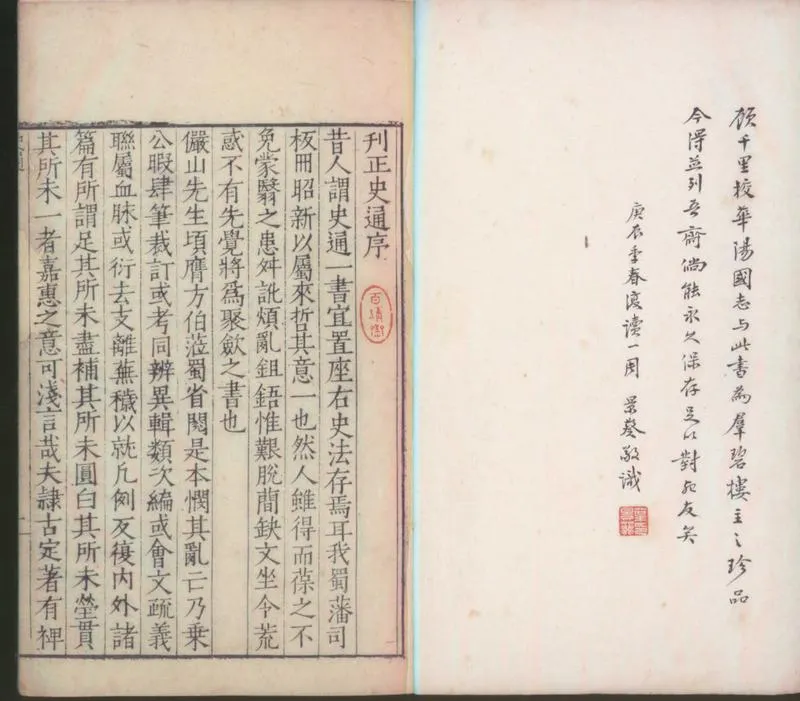 顧千里校華陽國志与此書為羣碧樓主之珍品
今得並列吾齋倘能永久保存足以對死友矣
庚辰季春復讀一周 景葵敬識
刊正史通序
昔人謂史通一書宜置座右史法存焉耳我蜀藩司
板冊昭新以屬來哲其意一也然人雖得而葆之不
免蒙翳之患舛訛煩亂鉏鋙惟艱脫簡缺文坐令荒
惑不有先覺將為聚歛之書也
儼山先生頃膺方伯蒞蜀省閱是本憫其亂亡乃乗
公暇肆筆裁訂或考同辨異輯類次編或會文疏義
聯屬血脉或衍去支離蕪穢以就凡例反復内外諸
篇有所謂足其所未盡補其所未圓白其所未瑩貫
其所未一者嘉惠之意可淺言哉夫隷古定著有裨